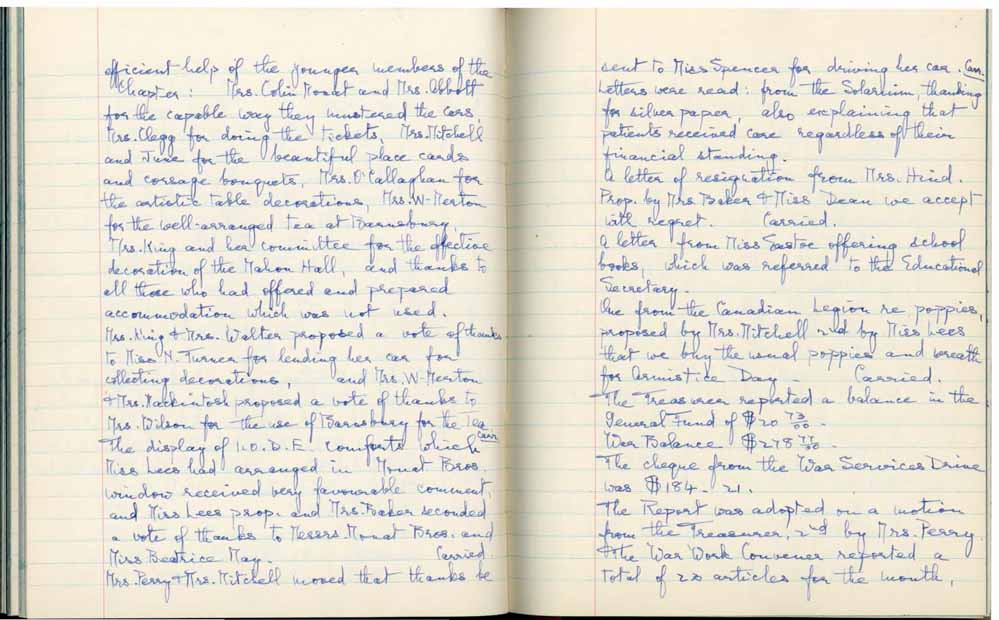 efficient help of the younger members of the
Chapter: Mrs. Colin Mouat and Mrs. Abbott
for the capable way they mustered the cars,
Mrs. Clegg for doing the tickets, Mrs. Mitchell
and June for the beautiful place cards
and corsage bouquets, Mrs. O'Callaghan for
the artistic table decorations, Mrs. W-Merton
for the well-arranged tea at Barnsbury,
Mrs. King and her committee for the effective
decoration of the Mahon Hall, and thanks to
all those who had offered and prepared
accommodation which was not used.
Mrs. King & Mrs. Walter proposed a vote of thanks
to Miss N. Turner for lending her car for
collecting decorations, and Mrs. W-Merton
& Mrs. Mackintosh proposed a vote of thanks to
Mrs. Wilson for the use of Barnsbury for the Tea. Carr.
The display of I.O.D.E. comforts which
Miss Lees had arranged in Mouat Bros.
window received very favourable comment,
and Miss Lees prop. and Mrs. Baker seconded
a vote of thanks to Messrs. Mouat Bros. and
Miss Beatrice May. Carried.
Mrs. Perry & Mrs. Mitchell moved that thanks be
sent to Miss Spencer for driving her car. Carr.
Letters were read: from the Solarium, thanking
for silver paper, also explaining that
patients received care regardless of their
financial standing.
A letter of resignation from Mrs. Hind.
Prop. by Mrs. Baker & Miss Dean we accept
with regret. Carried.
A letter from Miss Eastoe offering school
books, which was referred to the Educational
Secretary.
One from the Canadian Legion re poppies,
proposed by Mrs. Mitchell 2nd by Miss Lees
that we buy the usual poppies and wreath
for Armistice Day - Carried.
The Treasurer reported a balance in the
General Fund of $20 73/00.
War Balance $278 77/00.
The cheque from the War Services Drive
was $184-21.
The Report was adopted on a motion
from the Treasurer, 2nd by Mrs. Perry.
& The War Work Convener reported a
total of 20 articles for the month,